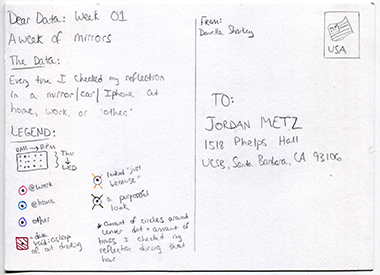 Dear Data: Week 01
A week of mirrors
The Data:
Every time I checked my reflection
in a mirror/car/Iphone at
home, work, or "other."
LEGEND:
Thu
WED
@work
@home
other
= data
void:
of not checking
looked "just
because"
a purposeful
look
amount of circles around
center dot = amount of
times I checked my
reflection during that
hour
From:
USA
TO:
JORDAN METZ
1518 Phelps Hall
UCSB, Santa Barbara, CA 93106